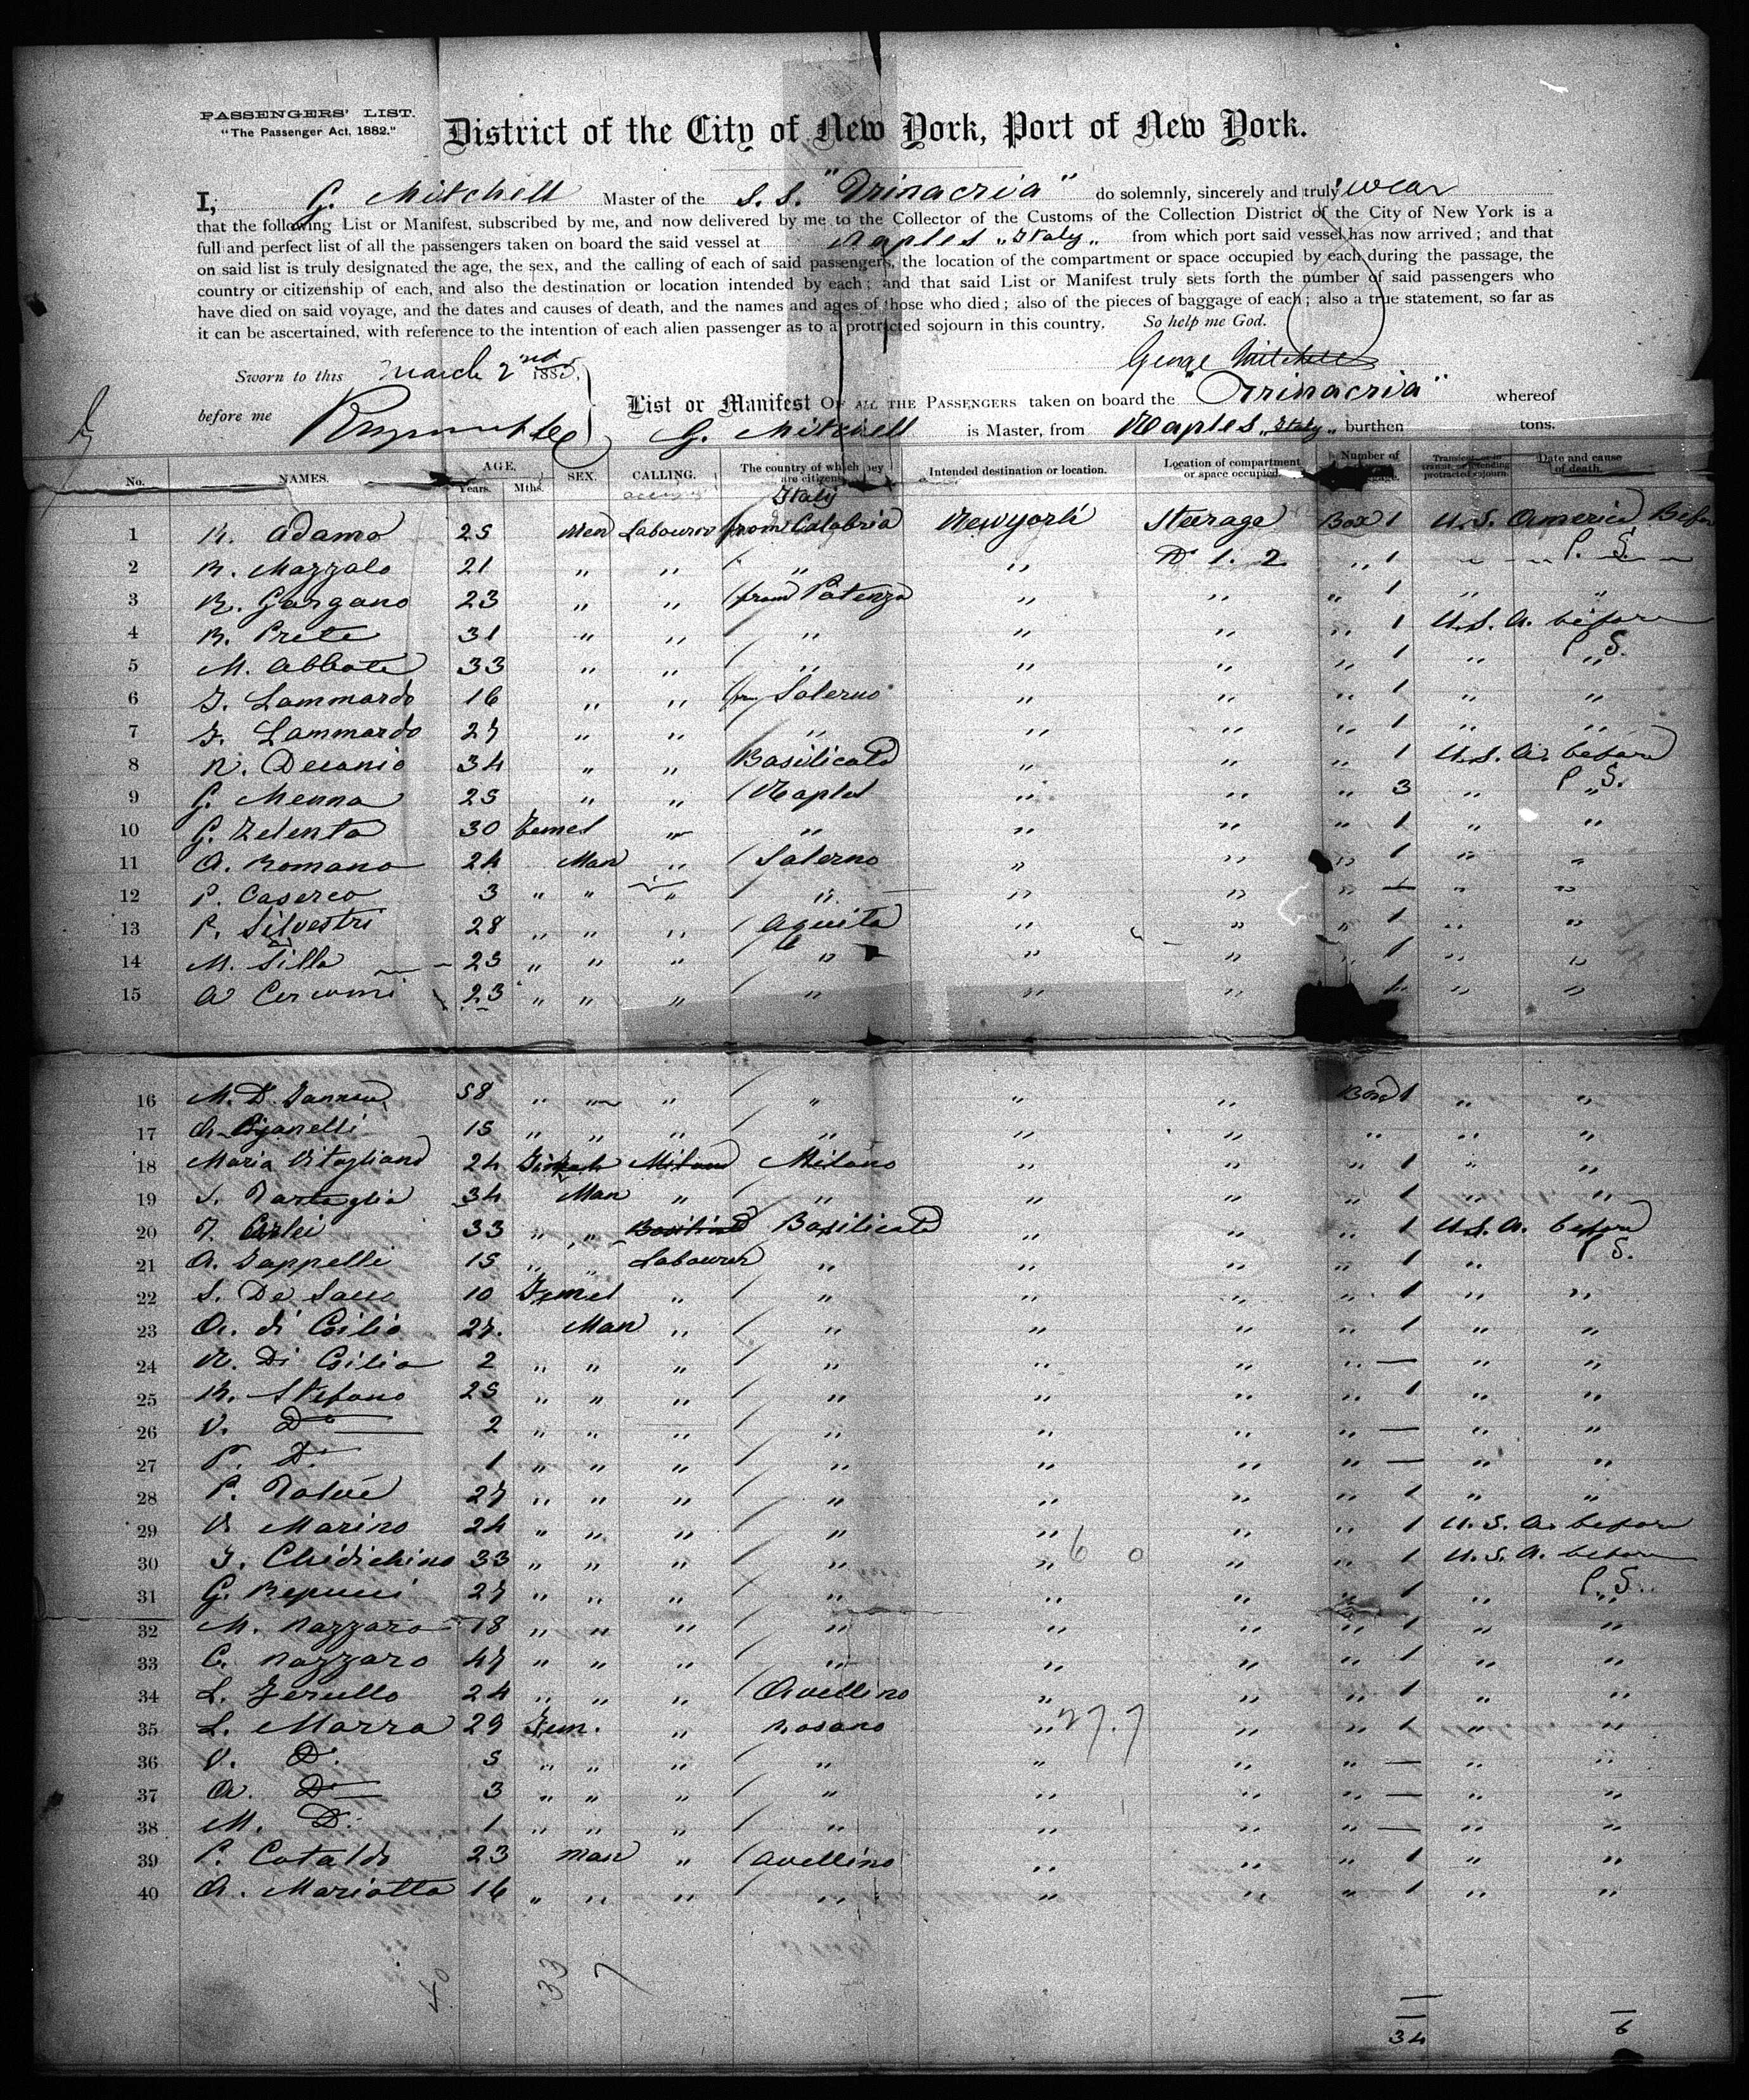 PASSENGERS' LIST.
"The Passenger Act, 1882."
District of the City of New York, Port of New York.
I, G. Mitchell Master of the S.S. "Trinacria" do solemnly, sincerely and truly swear
that the following List or Manifest, subscribed by me, and now delivered by me to the Collector of the Customs of the Collection District of the City of New York is a
full and perfect list of all the passengers taken on board the said vessel at Naples "Italy" from which port said vessel has now arrived; and that
on said list is truly designated the age, the sex, and the calling of each of said passengers, the location of the compartment or space occupied by each during the passage, the
country or citizenship of each, and also the destination or location intended by each; and that said List or Manifest truly sets forth the number of said passengers who
have died on said voyage, and the dates and causes of death, and the names and ages of those who died; also of the pieces of baggage of each; also a true statement, so far as
it can be ascertained, with reference to the intention of each alien passenger as to a protracted sojourn in this country. So help me God.
George Mitchell
Sworn to this March 2nd 188
before me
List or Manifest OF ALL THE PASSENGERS taken on board the "Trinacria" whereof
G. Mitchell is Master, from Naples "Italy" burthen tons.
No. NAMES. AGE. Years. Mths. SEX. CALLING. The country of which they are citizens. Intended destination or location. Location of compartment or space occupied. Number of Transient, or in transit, or intending protracted sojourn. Date and cause of death.
Italy
1 R. Adamo 25 Men Labourer from Calabria New york Steerage Box 1 U.S. America Before
2 R. Mazzalo 21 " " " " No 1. 2 " 1 P. S.
3 R. Gargano 23 " " from Potenza " " " 1 " "
4 R. Prete 31 " " " " " " 1 U.S.A. before
5 M. Abbate 33 " " " " " " 1 " P. S.
6 F. Lammardo 16 " " from Salerno " " " 1 " "
7 F. Lammardo 27 " " " " " " 1 " "
8 N. Decanio 34 " " Basilicata " " " 1 U.S.A. before
9 G. Menna 25 " " Naples " " " 3 " P. S.
10 G. Zelenta 30 Femel " " " " " 1 " "
11 A. Romano 24 Man " Salerno " " " 1 " "
12 P. Caserco 3 " " " " " " " — " "
13 P. Silvestri 28 " " " Aquila " " " 1 " "
14 M. Silla 25 " " " " " " " 1 " "
15 A 23 " " " " " " 1 " "
16 M. D. 58 " " " " " " Box 1 " "
17 A. 15 " " " " " " " " "
18 Maria Vitagliano 24 Milano Milano " " " 1 " "
19 S. Tartaglia 34 Man " " " " " 1 " "
20 F. 33 " " Basilicata Basilicata " " " 1 U.S.A. before
21 A. Zappelli 15 " " Labourer " " " " 1 " P. S.
22 S. De 10 Femel " " " " " 1 " "
23 A. di Cilio 27. Man " " " " " 1 " "
24 N. Di Cilio 2 " " " " " " " — " "
25 R. Stefano 25 " " " " " " " 1 " "
26 V. Do 2 " " " " " " — " "
27 P. Do 1 " " " " " " " — " "
28 P. 27 " " " " " " " 1 " "
29 V. Marino 24 " " " " " " " 1 U.S.A. before
30 F. Chidichino 33 " " " " " 6 0 " " 1 U.S.A. before
31 G. Repucci 27 " " " " " " " 1 " P. S.
32 M. Nazzaro 18 " " " " " " " 1 " "
33 C. Nazzaro 47 " " " " " " " 1 " "
34 L. Zerullo 24 " " " Avellino " " " 1 " "
35 L. Marra 29 Fem. " Rosano " 27.7 " " 1 " "
36 V. Do 5 " " " " " " " — " "
37 A. Do 3 " " " " " " " — " "
38 M. Do 1 " " " " " " " — " "
39 P. Cataldo 23 man " Avellino " " " 1 " "
40 A. Mariatta 16 " " " " " " " 1 " "
40 33 7
34 6